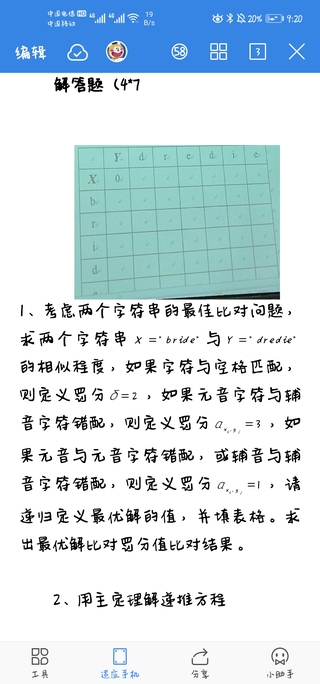 中国电信 HD 4G 4G 19 B/s 20% 9:20
中国移动
编辑 58 3
解答题（4*7
Y d r e d i e
X 0
b
r
i
d
1、考虑两个字符串的最佳比对问题，
求两个字符串 X ="bride" 与 Y ="dredie"
的相似程度，如果字符与空格匹配，
则定义罚分 δ=2 ，如果元音字符与辅
音字符错配，则定义罚分 a_{x_i,y_j} =3 ，如
果元音与元音字符错配，或辅音与辅
音字符错配，则定义罚分 a_{x_i,y_j} =1 ，请
递归定义最优解的值，并填表格。求
出最优解比对罚分值比对结果。
2、用主定理解递推方程
工具 适应手机 分享 小助手